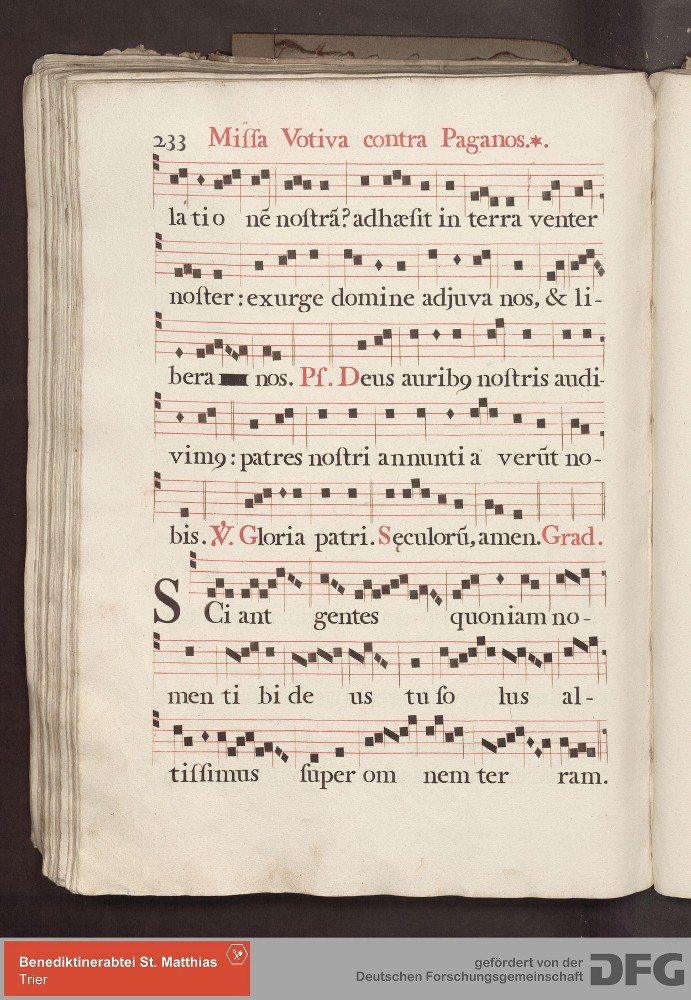 233 Miſſa Votiva contra Paganos.*.
la tio nē noſtrā? adhæſit in terra venter
noſter: exurge domine adjuva nos, & li-
bera nos. Pſ. Deus auribꝯ noſtris audi-
vimꝯ: patres noſtri annunti a verūt no-
bis. ℣. Gloria patri. Sęculorū, amen. Grad.
SCi ant gentes quoniam no-
men ti bi de us tu ſo lus al-
tiſſimus ſuper om nem ter ram.
Benediktinerabtei St. Matthias
Trier
gefördert von der
Deutschen Forschungsgemeinschaft DFG